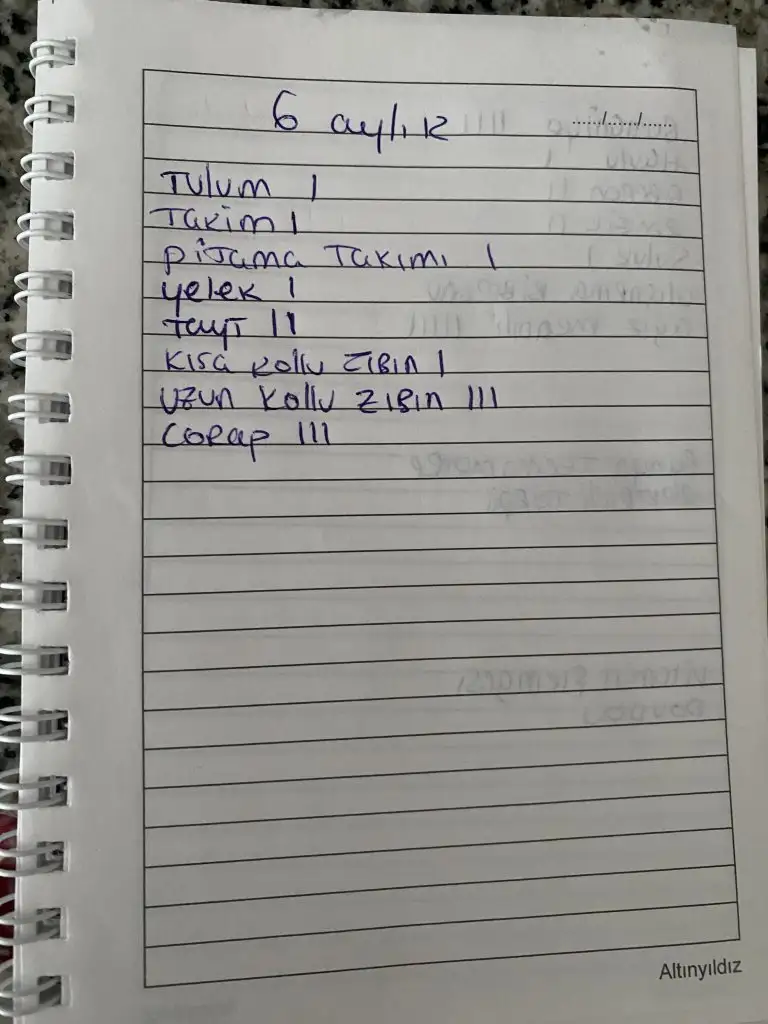 6 aylık
...../...../.....
Tulum I
Takim I
piJama Takımı I
yelek I
tayt II
Kısa kollu zıBın I
uzun kollu zıBın III
çoRap III
Altınyıldız